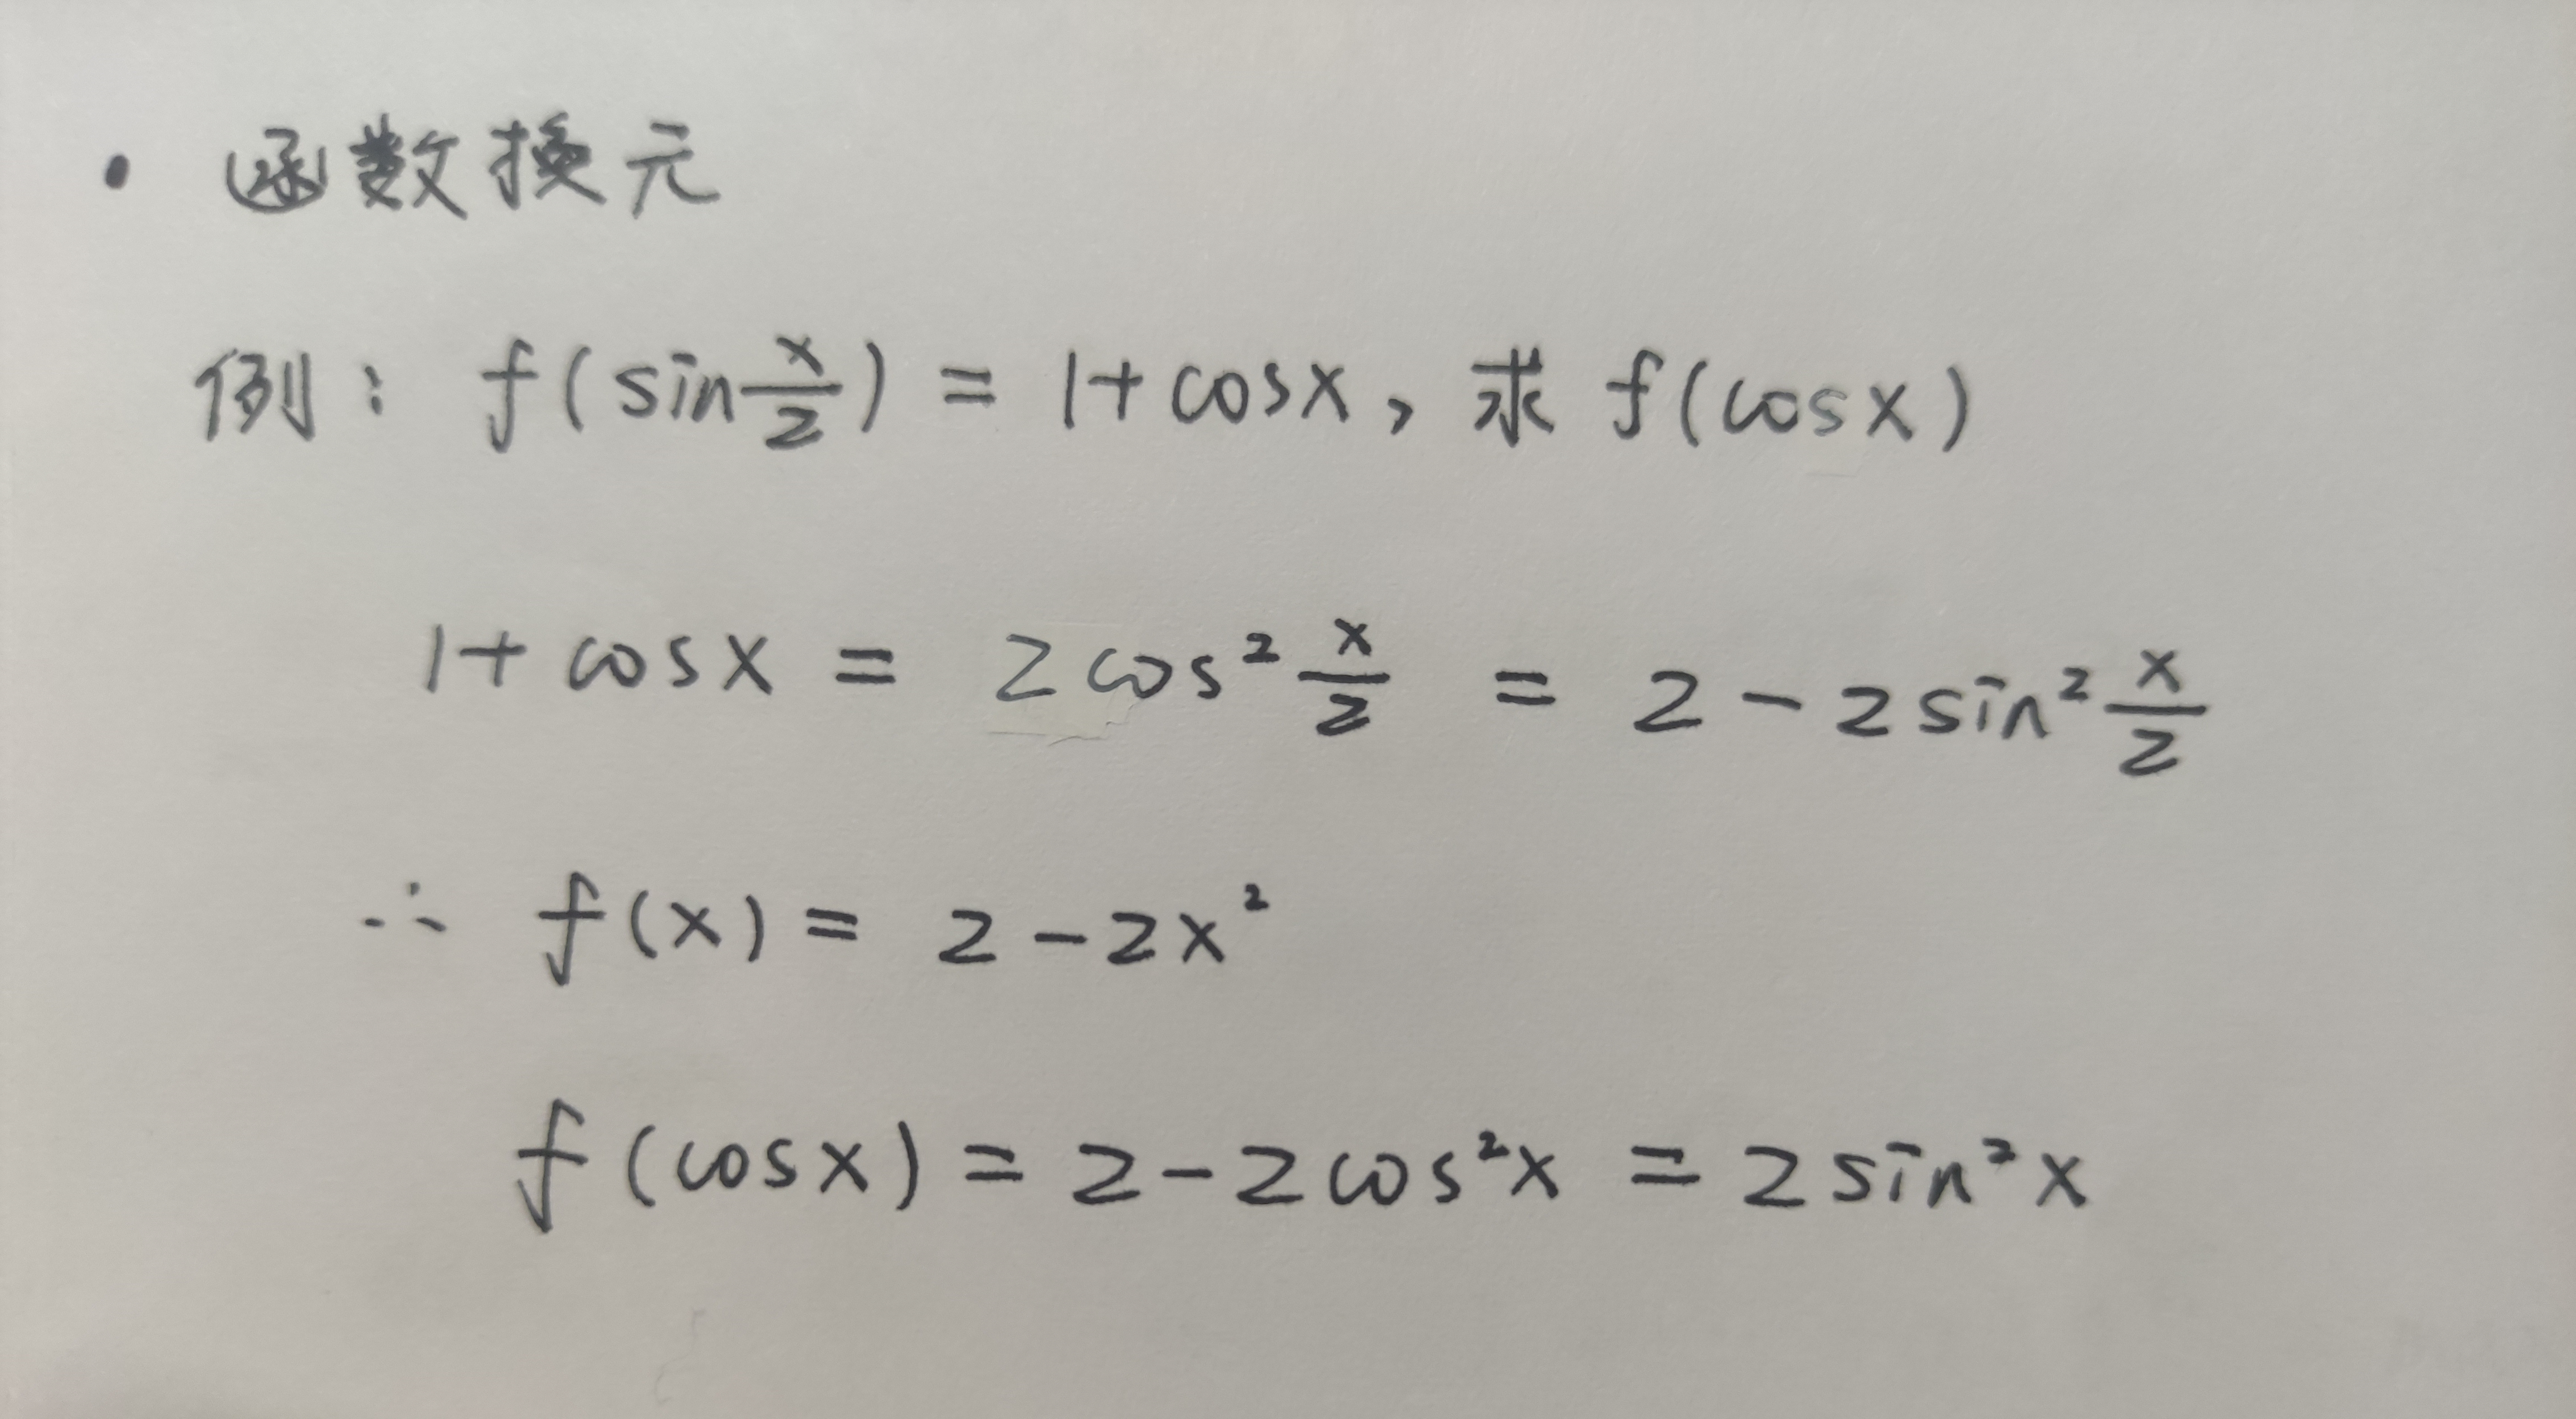 · 函数换元
例：f(sin x/2) = 1+cosx，求 f(cosx)
1+cosx = 2cos² x/2 = 2-2sin² x/2
∴ f(x) = 2-2x²
f(cosx) = 2-2cos²x = 2sin²x